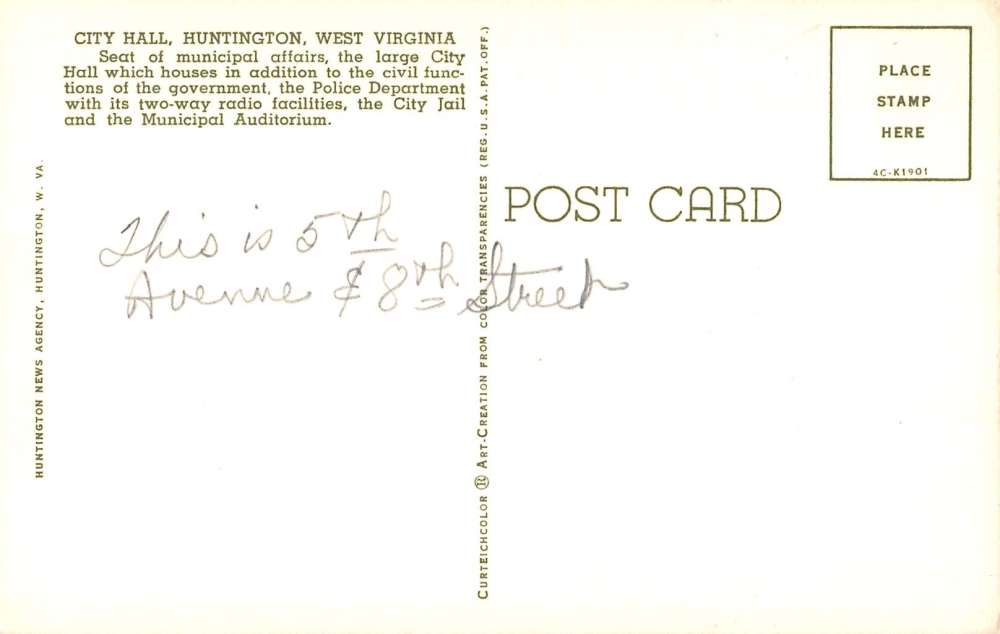 CITY HALL, HUNTINGTON, WEST VIRGINIA
Seat of municipal affairs, the large City
Hall which houses in addition to the civil func-
tions of the government, the Police Department
with its two-way radio facilities, the City Jail
and the Municipal Auditorium.
HUNTINGTON NEWS AGENCY, HUNTINGTON, W. VA.
This is 5th
Avenue & 8th Street
CURTEICHCOLOR ® ART-CREATION FROM COLOR TRANSPARENCIES (REG. U.S.A. PAT. OFF.)
POST CARD
PLACE
STAMP
HERE
4C-K1901